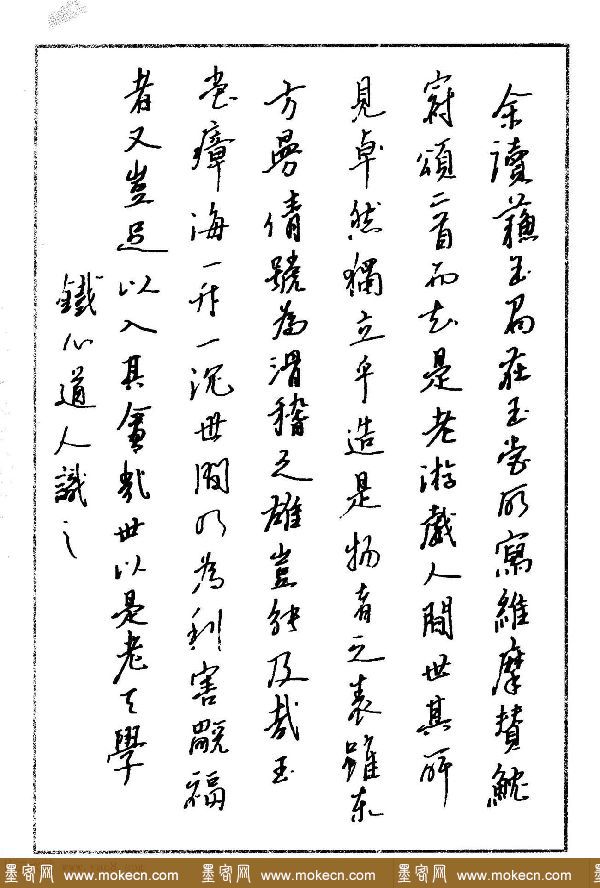 余讀蘇玉局在玉堂所寫維摩贊魫
冠頌二首而知是老游戲人間世其所
見卓然獨立乎造是物者之表雖東
方曼倩號為滑稽之雄豈能及哉玉
堂瘴海一升一沉世間所為利害禍福
者又豈足以入其舍哉世以是老之學
鐵心道人識之
墨客网 www.mokecn.com 墨客网 www.mokecn.com 墨客网 www.mokecn.com 墨客网 www.mokecn.com